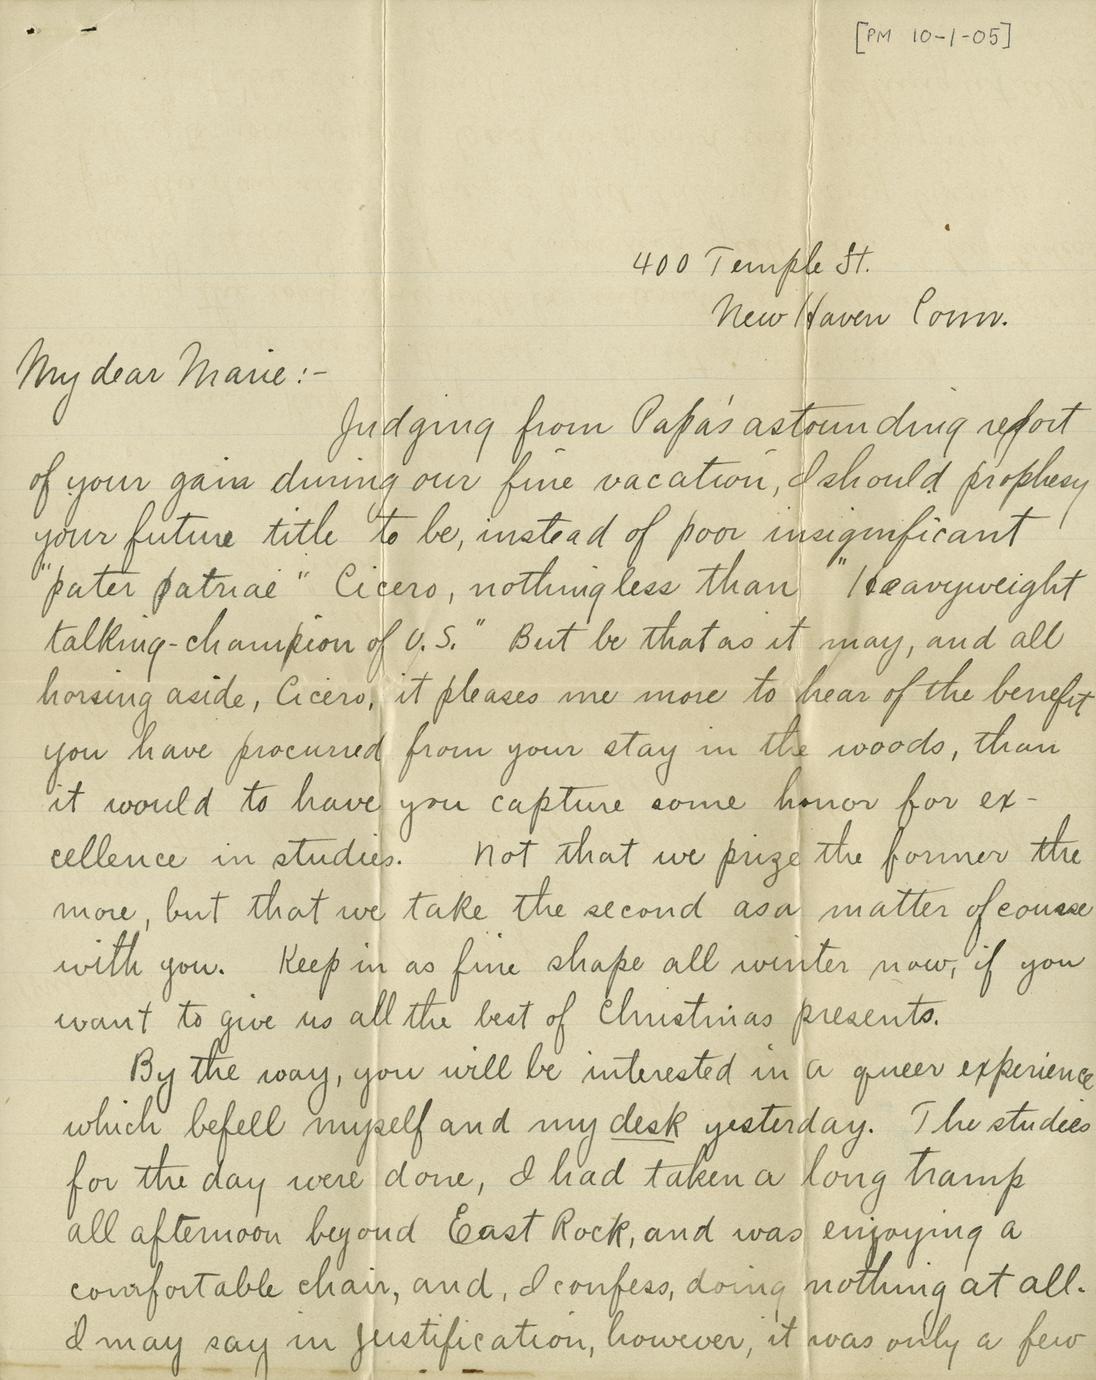 [PM 10-1-05]
400 Temple St.
New Haven Conn.
My dear Marie:-
Judging from Papa's astounding report
of your gain during our fine vacation, I should prophesy
your future title to be, instead of poor insignificant
"pater patriae" Cicero, nothing less than "Heavyweight
talking-champion of U.S." But be that as it may, and all
horsing aside, Cicero, it pleases me more to hear of the benefit
you have procurred from your stay in the woods, than
it would to have you capture some honor for ex-
cellence in studies. Not that we prize the former the
more, but that we take the second as a matter of course
with you. Keep in as fine shape all winter now, if you
want to give us all the best of Christmas presents.
By the way, you will be interested in a queer experience
which befell myself and my desk yesterday. The studies
for the day were done, I had taken a long tramp
all afternoon beyond East Rock, and was enjoying a
comfortable chair, and, I confess, doing nothing at all.
I may say in justification, however, it was only a few